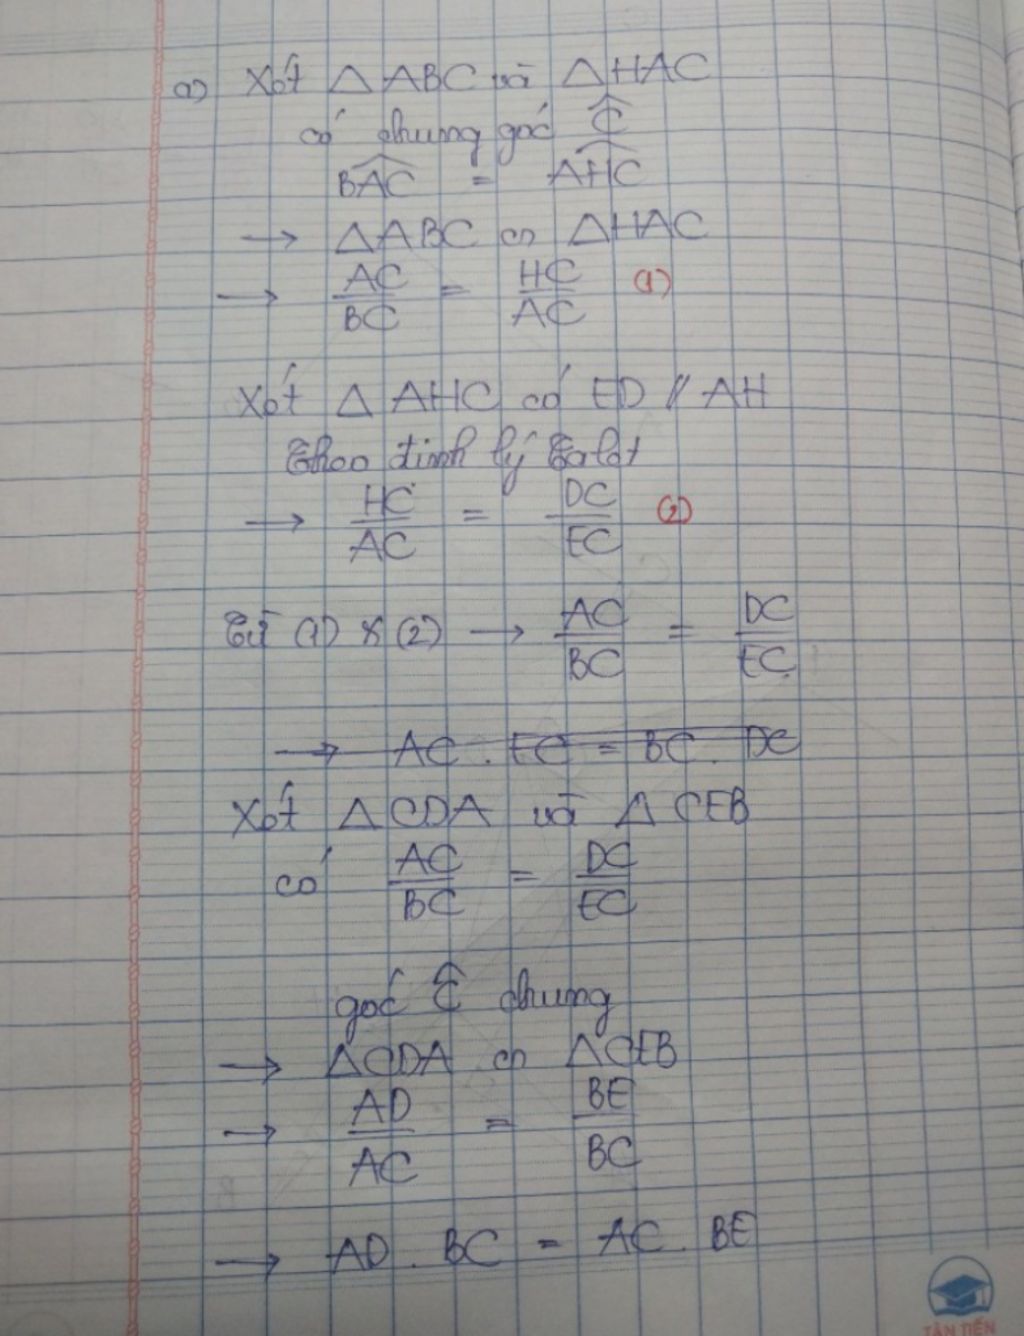 a) Xét △ ABC và △ HAC
có chung góc Ĉ
BAC = AHC
→ △ABC ∽ △HAC
→ AC/BC = HC/AC (1)
Xét △ AHC có ED // AH
Theo định lý Talet
→ HC/AC = DC/EC (2)
Từ (1) & (2) → AC/BC = DC/EC
→ AC . EC = BC . DC
Xét △ CDA và △ CEB
có AC/BC = DC/EC
góc Ĉ chung
→ △CDA ∽ △CEB
→ AD/AC = BE/BC
→ AD . BC = AC . BE
TÂN TIẾN